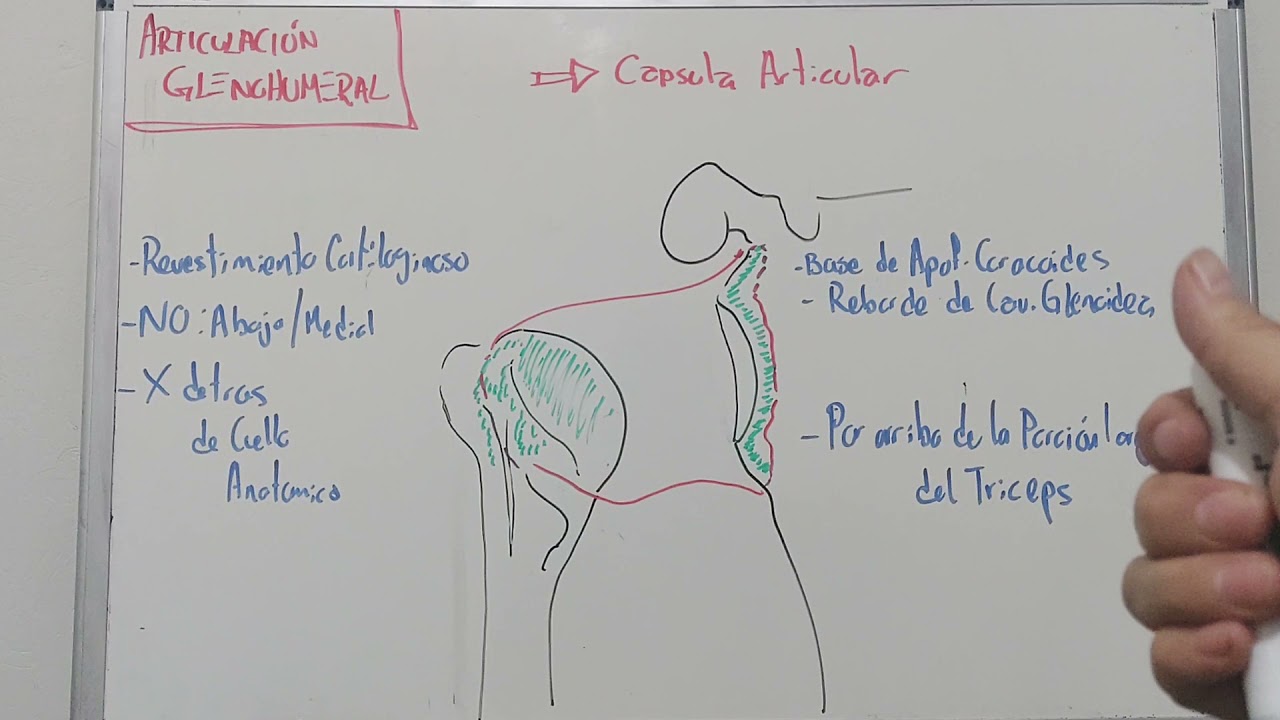 ARTICULACIÓN
GLENOHUMERAL
⇒ Capsula Articular
-Revestimiento Cartilaginoso
-NO: Abajo/Medial
-X detras
de Cuello
Anatomico
-Base de Apof. Coracoides
-Reborde de Cav. Glenoidea
-Por arriba de la Porción
del Triceps